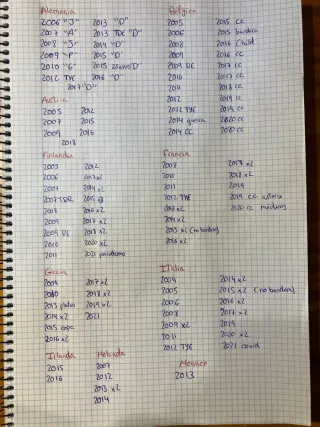 Alemania
2006 "J" 2013 "D"
2007 "A" 2013 TYE "D"
2008 "J" 2014 "D"
2009 "F" 2015 "D"
2010 "G" 2015 25 años "D"
2012 TYE 2016 "D"
2017 "D"
Austria
2005 2012
2007 2015
2009 2016
2018
Bélgica
2005 2015 cc
2006 2015 bandera
2008 2016 Child
2009 2016 cc
2009 UE 2017 cc
2010 2017 cc
2011 2018 cc
2012 2019 cc
2012 TYE 2019 cc
2014 guerra 2020 cc
2014 cc 2020 cc
Finlandia
2005 2012
2006 2013 x2
2007 2014 x2
2009 2017 x2
2009 UE 2018 x2
2010 2020 x2
2011 2021 periodismo
Francia
2008 2017 x2
2010 2018 x2
2011 2019
2012 TYE 2019 cc asterix
2013 x2 2020 cc médicos
2014 x2
2015 x2 (no bandera)
2016 x2
Grecia
2004 2017 x2
2010 2018 x2
2019 x2
2014 x2 2021
2015 espa
2016 x2
Italia
2004 2014 x2
2005 2015 x2 (no bandera)
2006 2016 x2
2008 2017 x2
2009 x2 2019
2011 2020 x2
2012 TYE 2021 covid
Irlanda
2015
2016
Holanda
2007
2012
2013 x2
2014
Monaco
2013